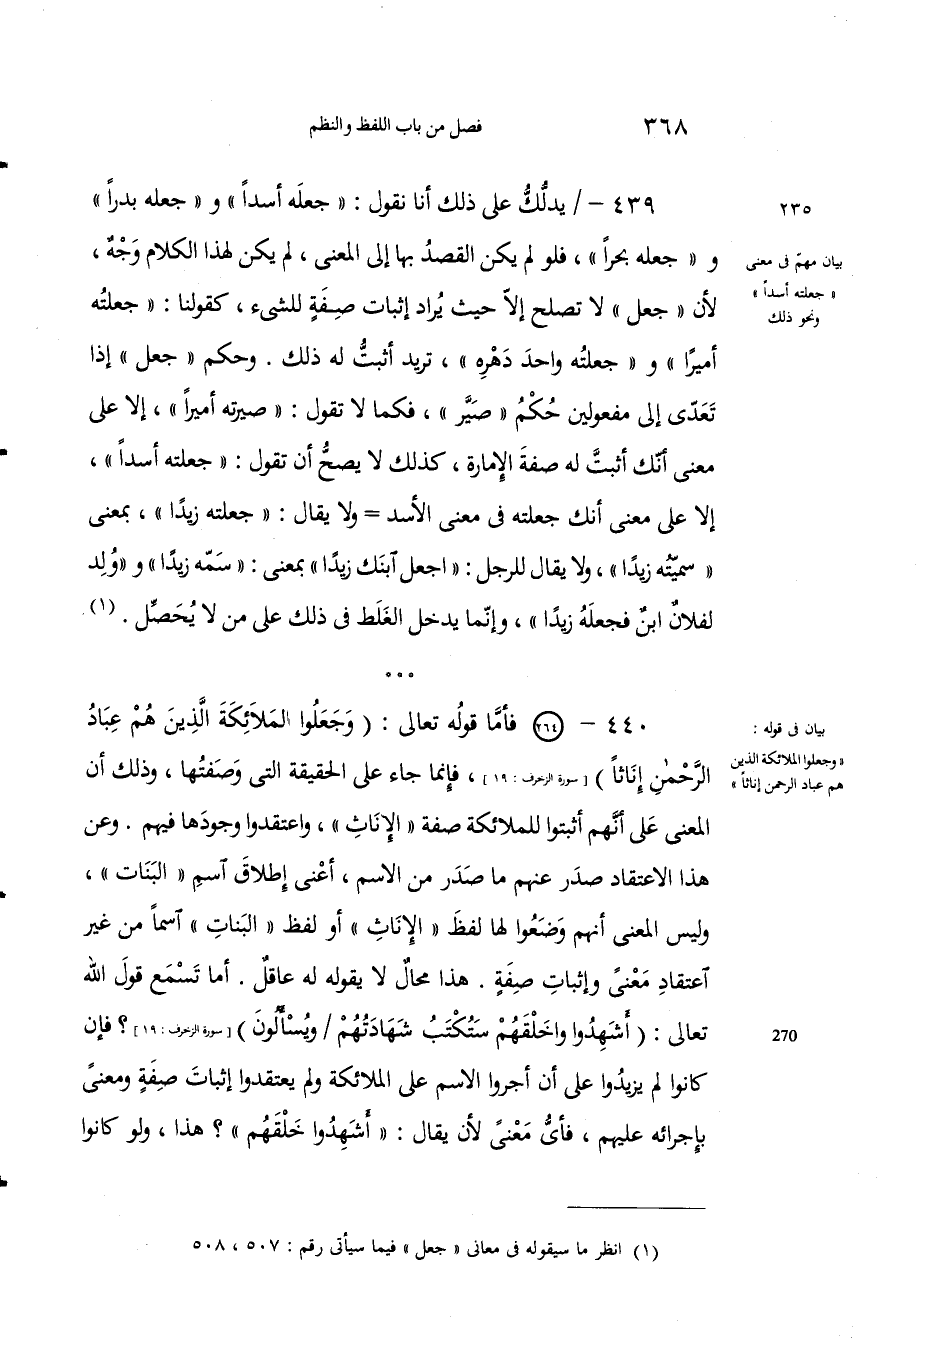 ٣٦٨ فصل من باب اللفظ والنظم
٢٣٥
٤٣٩ – / يدلُّكُّ على ذلك أنا نقول : « جعلَه أسداً » و « جعله بدراً »
و « جعله بحراً » ، فلو لم يكن القصدُ بها إلى المعنى ، لم يكن لهذا الكلام وَجْهٌ ،
بيان مهمّ فى معنى
« جعلته أسداً »
ونحو ذلك
لأن « جعل » لا تصلح إلاّ حيث يُراد إثبات صِفَةٍ للشىء ، كقولنا : « جعلتُه
أميرًا » و « جعلتُه واحدَ دَهْرِه » ، تريد أثبتُّ له ذلك . وحكم « جعل » إذا
تَعَدّى إلى مفعولين حُكْمُ « صَيَّر » ، فكما لا تقول : « صيرته أميراً » ، إلا على
معنى أنّك أثبتَّ له صفةَ الإِمارة ، كذلك لا يصحُّ أن تقول : « جعلته أسداً » ،
إلا على معنى أنك جعلته فى معنى الأسد = ولا يقال : « جعلته زيدًا » ، بمعنى
« سمّيتُه زيدًا » ، ولا يقال للرجل : « اجعل آبنَك زيدًا » بمعنى : « سَمّه زيدًا » و « وُلِد
لفلانٌ ابنٌ فجعلَهُ زيدًا » ، وإنّما يدخل الغَلَط فى ذلك على من لا يُحَصِّل . (١)
° ° °
٤٤٠ – (٢٦٤) فأمَّا قولُه تعالى : ( وَجَعَلُوا المَلاَئِكَةَ الَّذِينَ هُمْ عِبَادُ
بيان فى قوله :
« وجعلوا الملائكة الذين
هم عباد الرحمن إناثاً »
الرَّحْمٰنِ إِنَاثاً ) [ سورة الزخرف : ١٩ ] ، فإنما جاء على الحقيقة التى وَصَفتُها ، وذلك أن
المعنى عَلى أنَّهم أثبتوا للملائكة صفة « الإِنَاثِ » ، واعتقدوا وجودَها فيهم . وعن
هذا الاعتقاد صدَر عنهم ما صَدَر من الاسم ، أعْنى إطلاقَ آسمِ « البَنَات » ،
وليس المعنى أنهم وَضَعُوا لها لفظَ « الإِنَاثِ » أو لفظ « البَناتِ » آسماً من غير
آعتقادِ مَعْنىً وإثباتِ صِفَةٍ . هذا محالٌ لا يقوله له عاقلٌ . أما تَسْمَع قولَ الله
تعالى : ( أَشَهِدُوا واخَلْقَهُمْ سَتُكْتَبُ شَهَادَتُهُمْ / ويُسْأَلُونَ ) [ سورة الزخرف : ١٩ ] ؟ فإن
270
كانوا لم يزيدُوا على أن أجروا الاسم على الملائكة ولم يعتقدوا إثباتَ صِفَةٍ ومعنىً
بإجرائه عليهم ، فأىُّ مَعْنىً لأن يقال : « أَشَهِدُوا خَلْقَهُم » ؟ هذا ، ولو كانوا
(١) انظر ما سيقوله فى معانى « جعل » فيما سيأتى رقم : ٥٠٧ ، ٥٠٨